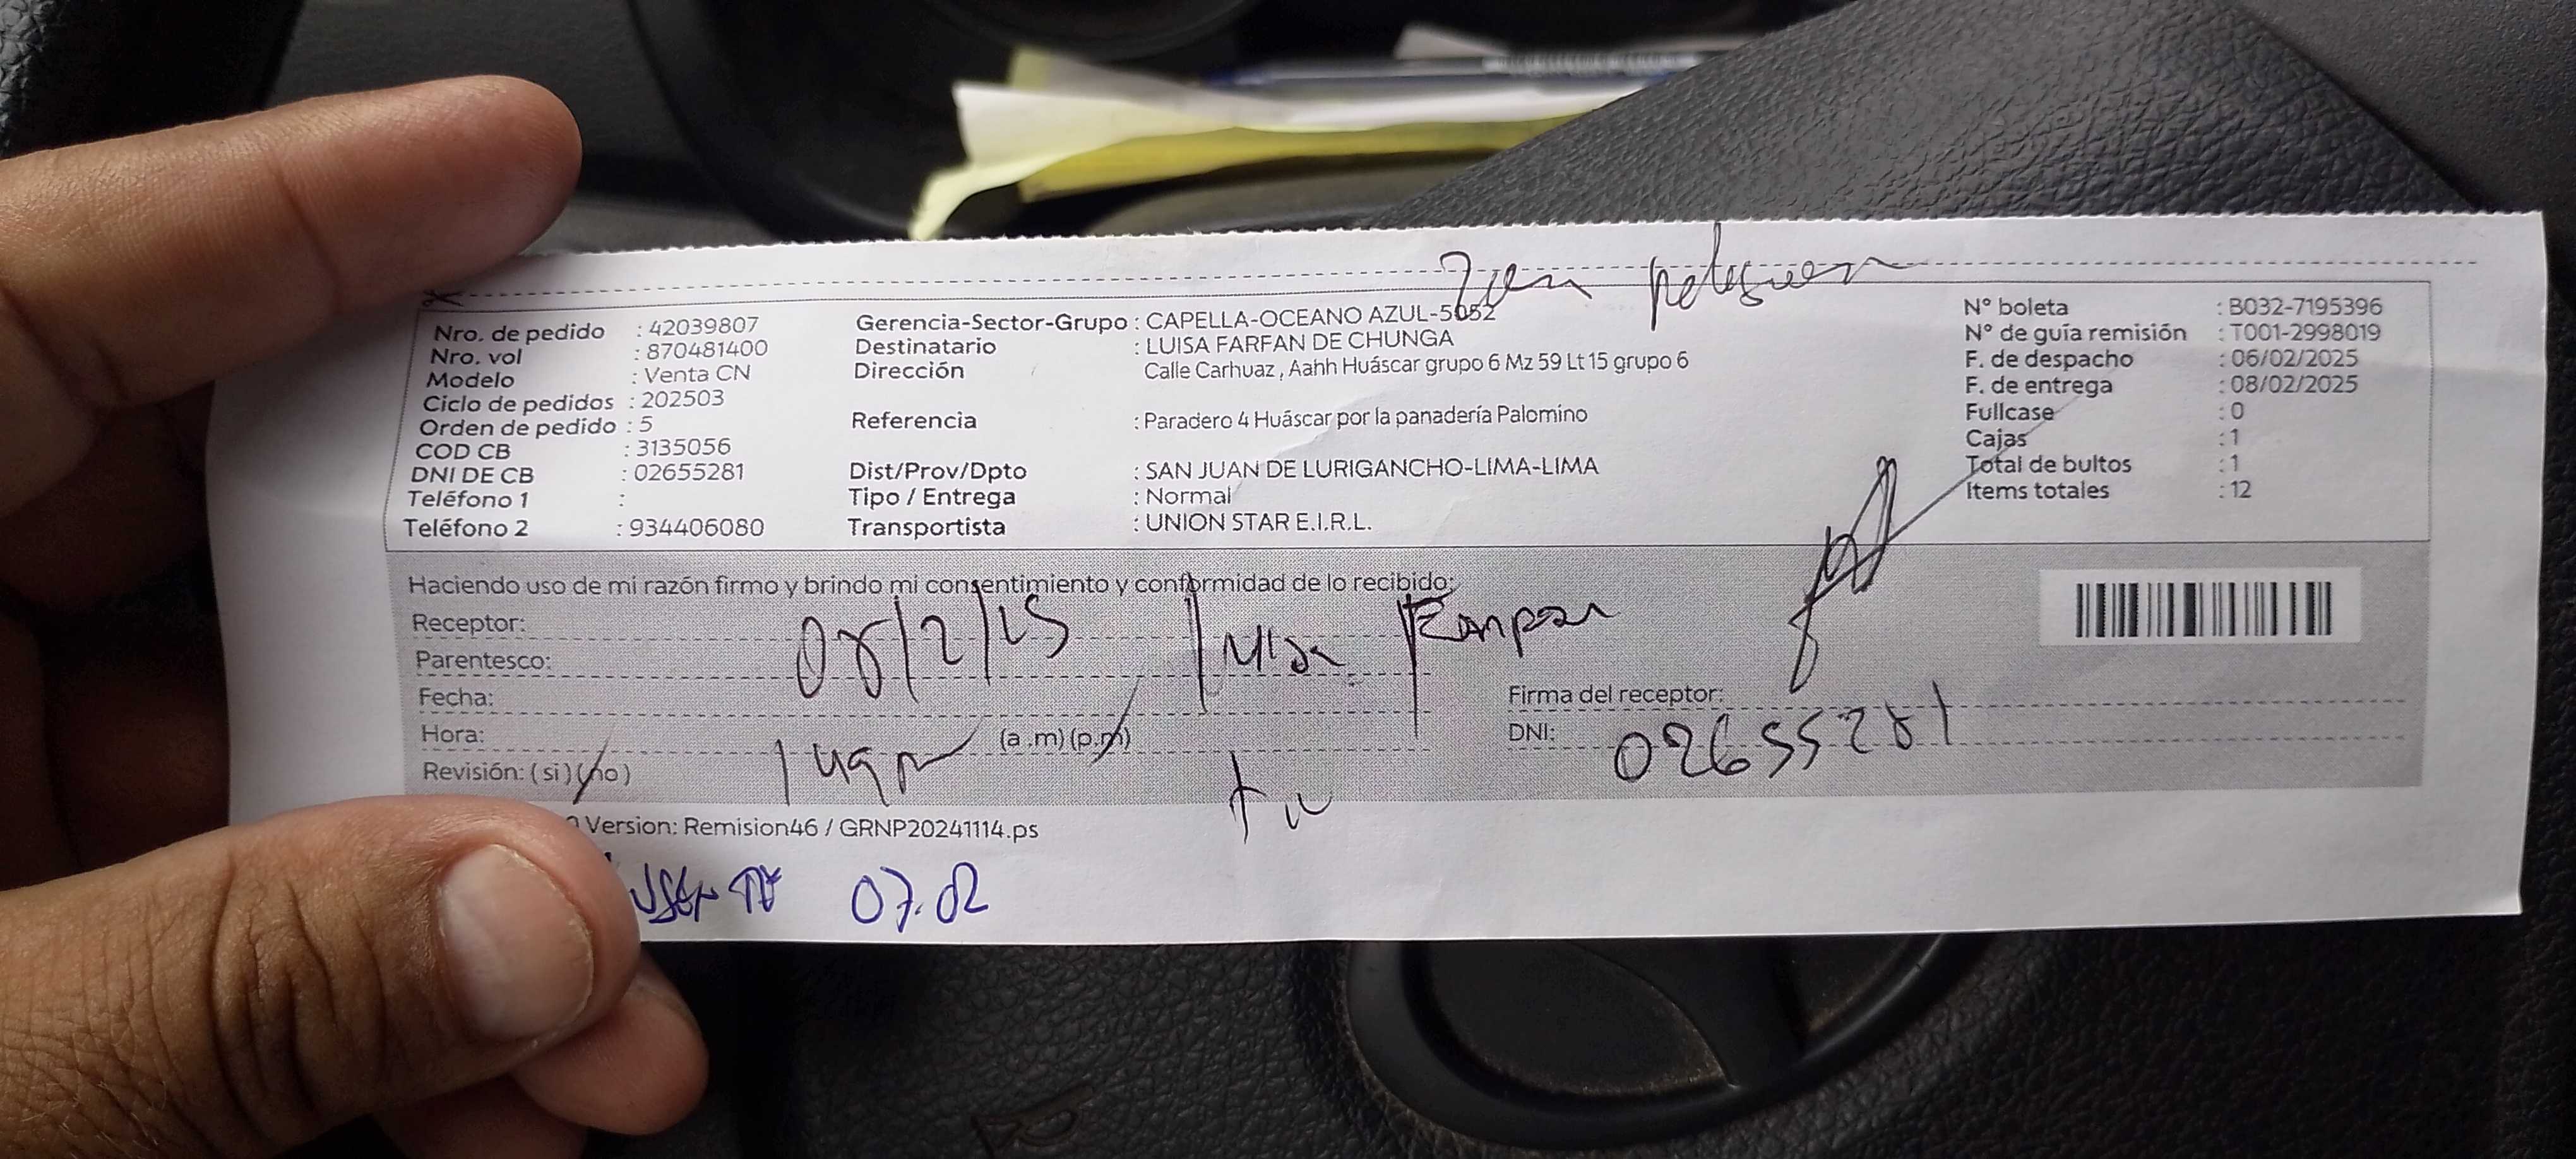 Nro. de pedido : 42039807
Nro. vol : 870481400
Modelo : Venta CN
Ciclo de pedidos : 202503
Orden de pedido : 5
COD CB : 3135056
DNI DE CB : 02655281
Teléfono 1 :
Teléfono 2 : 934406080
Gerencia-Sector-Grupo : CAPELLA-OCEANO AZUL-5052
Destinatario : LUISA FARFAN DE CHUNGA
Dirección Calle Carhuaz , Aahh Huáscar grupo 6 Mz 59 Lt 15 grupo 6
Referencia : Paradero 4 Huáscar por la panadería Palomino
Dist/Prov/Dpto : SAN JUAN DE LURIGANCHO-LIMA-LIMA
Tipo / Entrega : Normal
Transportista : UNION STAR E.I.R.L.
N° boleta : B032-7195396
N° de guía remisión : T001-2998019
F. de despacho : 06/02/2025
F. de entrega : 08/02/2025
Fullcase : 0
Cajas : 1
Total de bultos : 1
Items totales : 12
Haciendo uso de mi razón firmo y brindo mi consentimiento y conformidad de lo recibido:
Receptor:
Parentesco:
08/2/25 Luisa
Fecha:
Hora: (a .m) (p.m)
Revisión: ( si ) ( no )
Firma del receptor:
DNI: 02655281
Version: Remision46 / GRNP20241114.ps
07.02